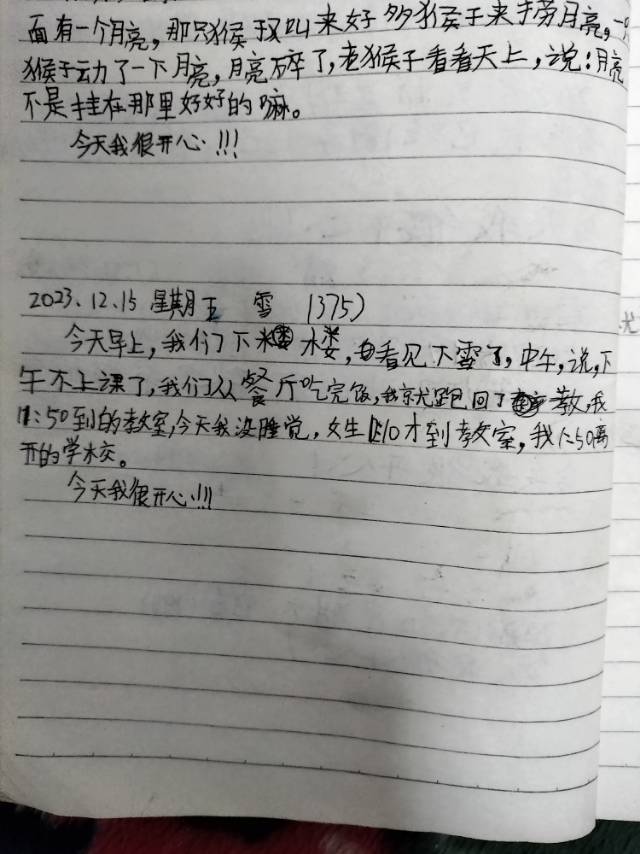 面有一个月亮,那只猴又叫来好多猴子来捞月亮,一
猴子动了一下月亮,月亮碎了,老猴子看看天上,说:月亮
不是挂在那里好好的嘛。
今天我很开心!!!
2023.12.15 星期五 雪 (375)
今天早上,我们下楼,看见下雪了,中午,说,下
午不上课了,我们从餐厅吃完饭,我就跑回了教,我
11:50到的教室,今天我没睡觉,女生1:10才到教室,我1:50离
开的学校。
今天我很开心!!!